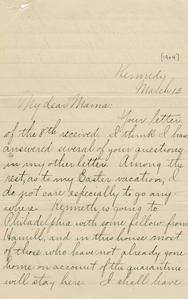 [1904]
Kennedy
March 12
My dear Mama:
Your letter
of the 8th received. I think I has
answered several of your questions
in my other letter. Among the
rest, as to my Easter vacation, I
do not care especially to go any-
where. Kenneth is going to
Philadelphia with some fellow from
Hamill, and in this house most
of those who have not already gone
home on account of the quarantine
will stay here. I shall have